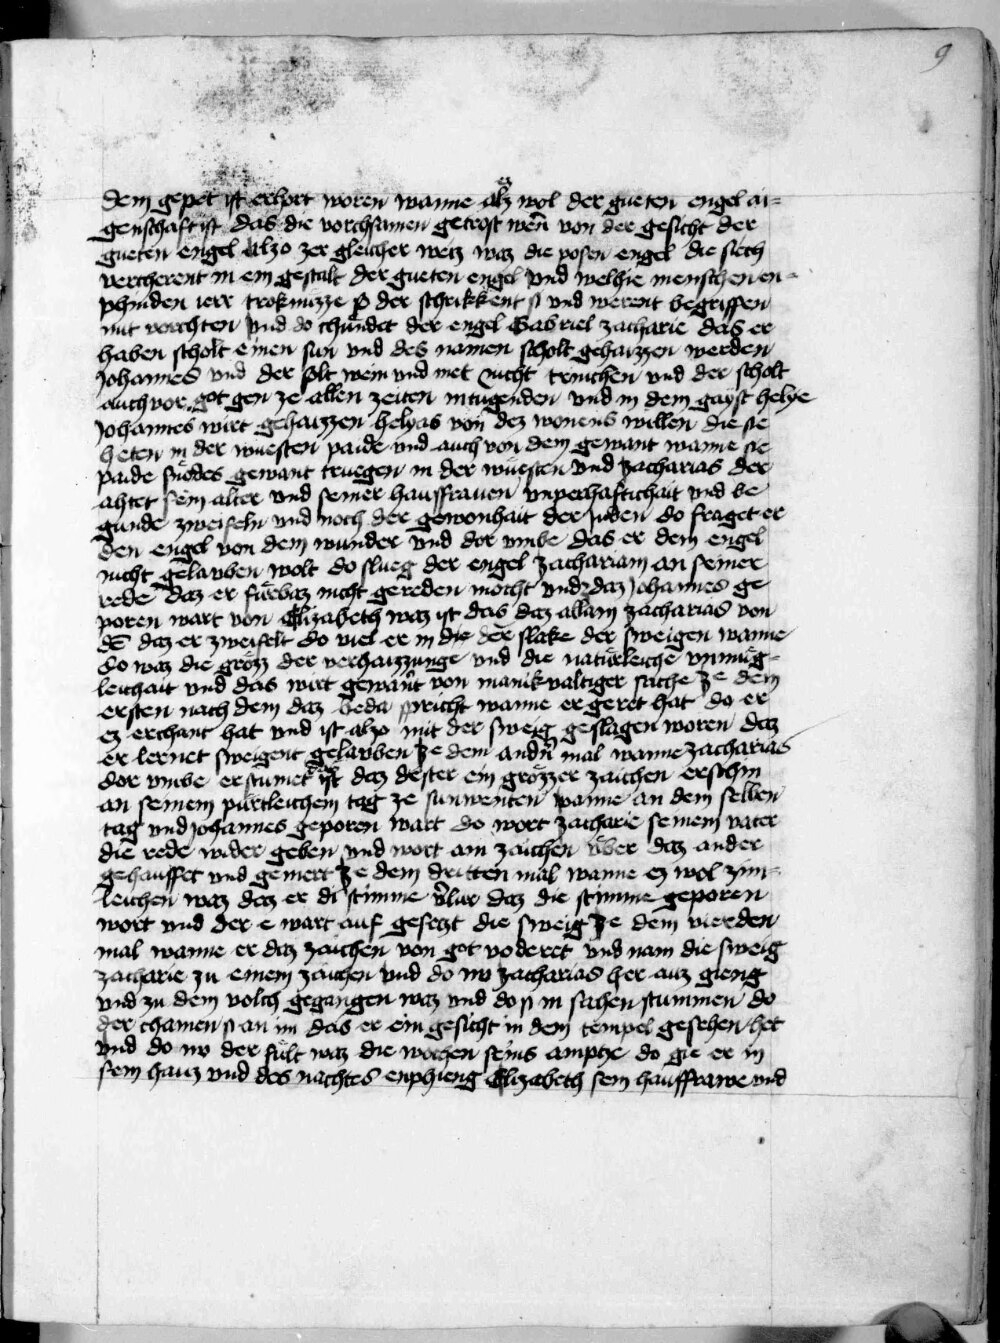 9
dein gepet ist erhort woren wanne alz ez wol der gueten engel ai=
genschaft ist das die vorchsamen getrost wern̄ von der gesicht der
gueten engel Alzo zer gleicher weiz waz die posen engel die siech
vercherent in ein gestalt der gueten engel Und welhie menschen en=
phinden ierr troknuzze so der schrikkent si und werent begriffen
mit vorchten Und do chundet der engel Gabriel zacharie das er
haben scholt einen sun vnd des namen scholt gehaizzen werden
Johannes vnd der solt wein vnd met nicht trinchen vnd der scholt
auch vor got gen ze allen zeiten in tugenden vnd in dem gayst helye
Johannes wirt gehaizzen helyas von dez wonens willen die sie
heten in der wuesten paide vnd auch von dem gewant wanne sie
paide snödes gewant truegen in der wuesten Vnd zacharias der
ahtet sein alter vnd seiner hausfrauen vnperhaftichait vnd be
gunde zweifeln vnd noch der gewonhait der Juden do fraget er
den engel von dem wunder vnd dor vmbe das er dem engel
nicht gelauben wolt do slueg der engel zachariam an seiner
rede daz er fürbaz nicht gereden mocht vnd daz Johannes ge
poren wart von Elizabeth waz ist das daz allain zacharias von
dē daz er zweifelt do viel er in die der slake der sweigen wanne
do waz die grözz der verhaizzunge vnd die natürleiche vnmüg=
leichait vnd das wirt gewant von manikvaltiger sache ze dem
ersten nach dem daz beda spricht wanne er geret hat do er
ez erchant hat vnd ist alzo mit der sweig geslagen woren daz
er lernet sweigent gelauben ze dem andn̄ mal wanne zacharias
dor vmbe erstumet ist daz dester ein grözzer zaichen erschin
an seinem pürtleichem tag ze sunwenten wanne an dem selben
tag vnd Johannes geporen wart do wort zacharie seinem vater
die rede wider geben vnd wort ain zaichen über daz ander
gehauffet vnd gemert ze dem dritten mal wanne ez wol zim=
leichen waz daz er di stimme v̄lür daz die stimme geporen
wort vnd der e wart auf gesetzt die sweig ze dem vierden
mal wanne er diz zaichen von got voderet vnd nam die sweig
zacharie zu einem zaichen vnd do nv zacharias her auz gieng
vnd zu dem volch gegangen waz vnd do si in sachen stummen do
der chamen si an im das er ein gesicht in dem tempel gesehen het
vnd do nv der fült waz die wochen seins amptz do gie er in
sein hauz vnd des nachtes enphieng Elizabeth sein hausfrawe vnd